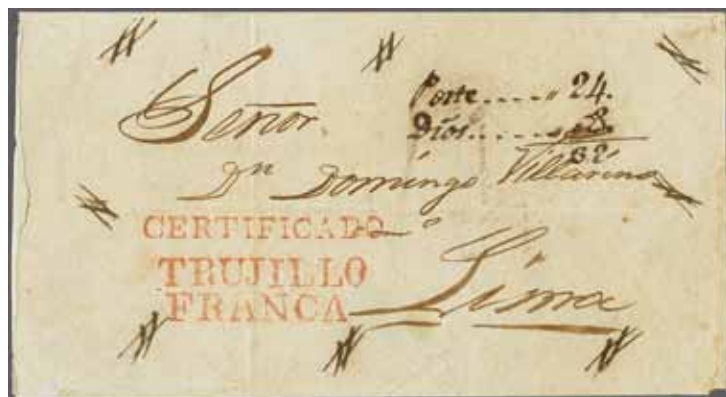 Porte..... " 24.
Señor.
Dros..... " 8
32
Dn Domingo Villarino
CERTIFICADO
TRUJILLO
FRANCA
Lima